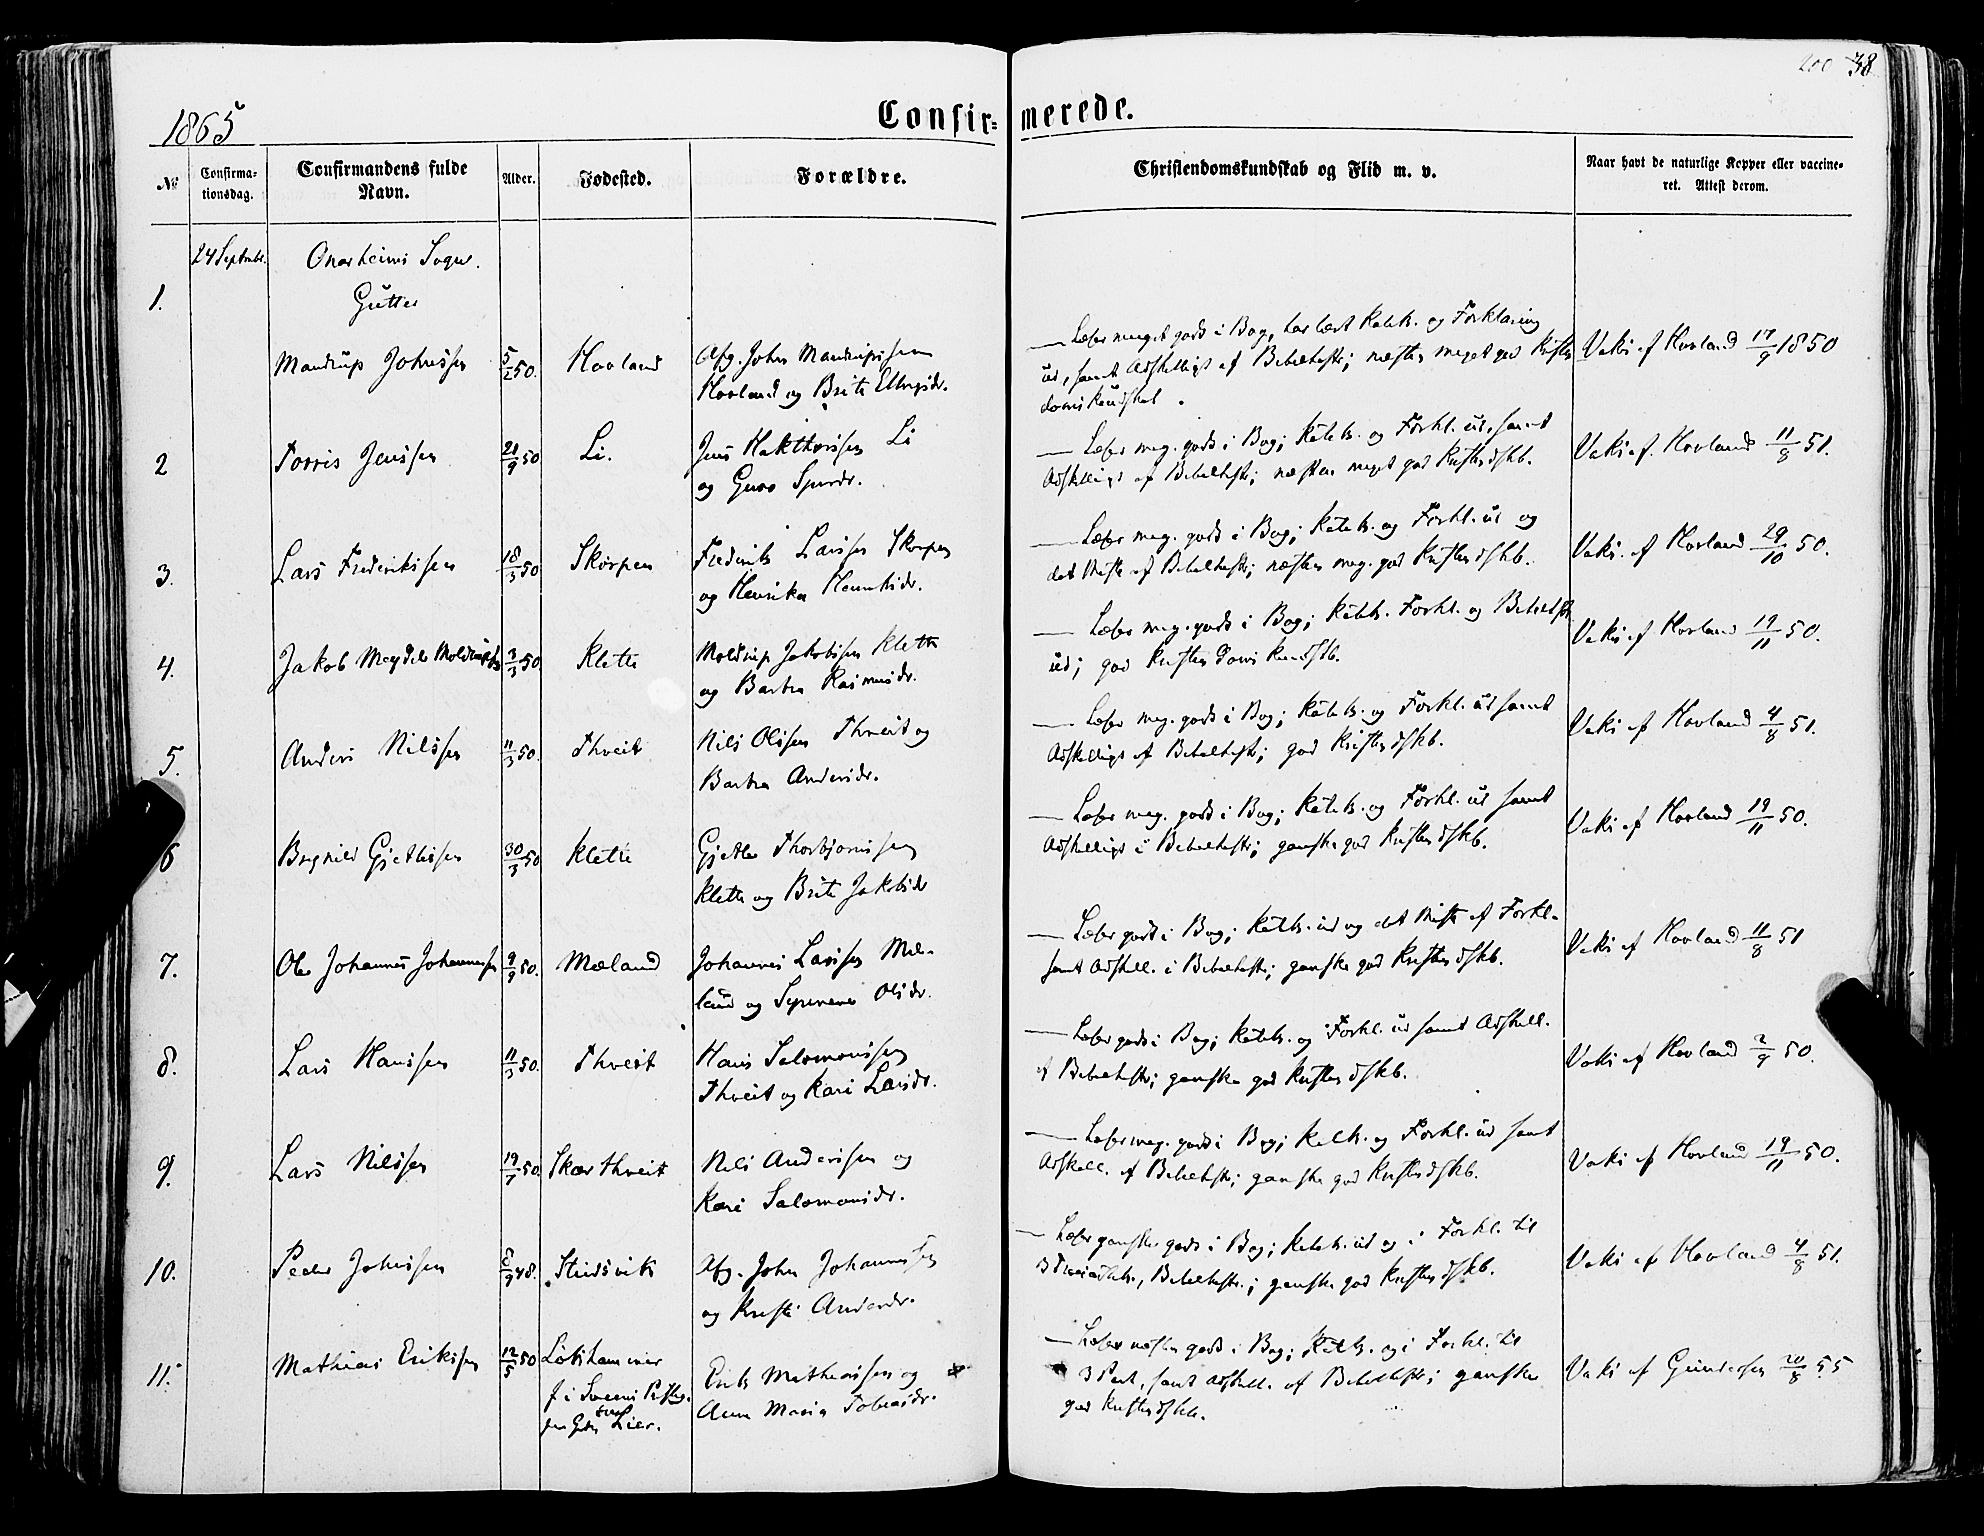 38
1865
Confir-merede.
No
Confirma-
tionsdag.
Confirmandens fulde
Navn.
Alder.
Fødested.
Forældre.
Christendomskundskab og Flid m. v.
Naar havt de naturlige Kopper eller vaccine-
ret. Attest derom.
24 Septembr.
Onarheims Sogn.
1.
Gutter
Mandrup Johnssen 5/2 50. Hovland
Afg. John Mandrupssen
Hovland og Brite
— Læser meget godt i Bog, har lært Katek. og Forklaring
ud, samt Adskilligt af Bibelhistr; næsten meget god Kristen
domskundskab.
Vaks af Hovland 17/9 1850
2 Torris Jenssen 21/9 50 Li.
Jens Li
og Guro Sjursdr.
— Læser meg. godt i Bog; Katek. og Forkl. ud, samt
Adskilligt af Bibelhistr; næsten meget god Kristendskb.
Vaks af. Hovland 11/8 51.
3. Lars Frederikssen 18/3 50 Skorpen
Frederik Larssen Skorpen
og Henrika Henriksdr.
— Læser meg. godt i Bog; Katek. og Forkl. ud og
det Meste af Bibelhistr; næsten meg. god Kristendskb.
Vaks. af Hovland 29/10 50.
4. Jakob Meydel 3/3 50 Klette
Moldrup Jakobssen Klette
og Barbra Rasmusdr.
— Læser meg. godt i Bog; Katek. Forkl. og Bibelhistr
ud; god Kristendomskundskb.
Vaks af Hovland 19/11 50.
5. Anders Nilssen 11/3 50. Thveit
Nils Olssen Thveit og
Barbra Andersdr.
— Læser meg. godt i Bog; Katek. og Forkl. ud samt
Adskilligt af Bibelhistr; god Kristendskb.
Vaks af Hovland 4/8 51.
6 Brynild Gjerthssen 30/3 50 Klette
Thorbjørnssen
Klette og Brite Jakobsdr
— Læser meg. godt i Bog; Katek. og Forkl. ud samt
Adskilligt i Bibelhistr; ganske god Kristendskb.
Vaks af Hovland 19/11 50.
7. Ole Johannes Johannessen 9/9 50. Mæland
Johannes Larssen Mæ-
land og Olsdr.
— Læser godt i Bog; Katek. ud og det Meste af Forkl.
samt Adskill. i Bibelhistr; ganske god Kristendskb.
Vaks af Hovland 11/8 51
8. Lars Hanssen 11/3 50. Thveit
Hans Salomonssen
Thveit og Kari Larsdr.
— Læser godt i Bog; Katek. og Forkl. ud samt Adskill.
af Bibelhistr; ganske god Kristendskb.
Vaks af Hovland 2/9 50.
9. Lars Nilssen 19/7 50. Skarthveit
Nils Anderssen og
Kari Salomonsdr.
— Læser meg. godt i Bog; Katek. og Forkl. ud samt
Adskill. af Bibelhistr; ganske god Kristendskb.
Vaks af Hovland 19/11 50.
10. Peder Johnssen 48.
Afg. John Johannessen
og Kristi Andersdr.
— Læser ganske godt i Bog; Katek. ud og i Forkl. til
Bibelhistr.; ganske god Kristendskb.
Vaks af Hovland 4/8 51.
11. Mathias Erikssen 12/5 50
f. i
Lier.
Erik Mathiassen og
Anna Maria Tobiasdr.
— Læser næsten godt i Bog; Katek. og i Forkl. til
3 Part, samt Adskill. af Bibelhistr; ganske
god Kristendskb.
Vaks af Gundersen 20/8 55